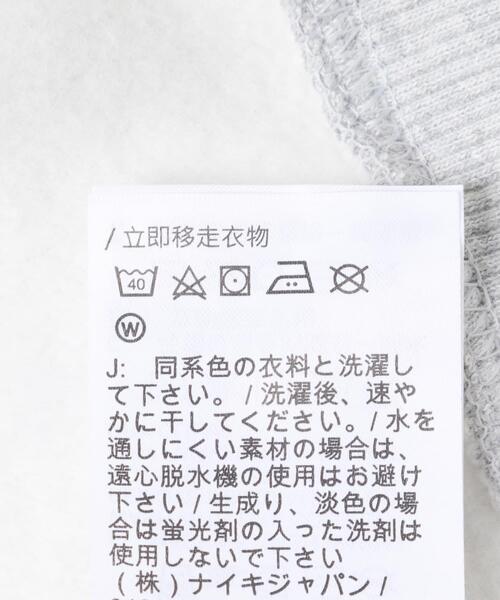 / 立即移走衣物
40
W
J:　同系色の衣料と洗濯し
て下さい。 / 洗濯後、速や
かに干してください。/ 水を
通しにくい素材の場合は、
遠心脱水機の使用はお避け
下さい / 生成り、淡色の場
合は蛍光剤の入った洗剤は
使用しないで下さい
（ 株 ）ナイキジャパン /